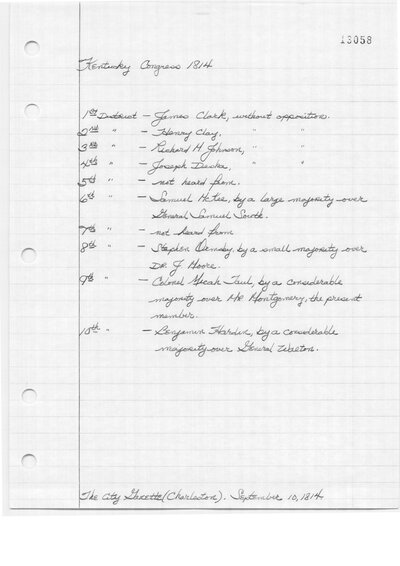 13058
Kentucky Congress 1814
1st District - James Clark, without opposition.
2nd " - Henry Clay, " "
3rd " - Richard H Johnson, " "
4th " - Joseph Desha, " "
5th " - not heard from.
6th " - Samuel McKee, by a large majority over
General Samuel South.
7th " - not heard from
8th " - Stephen Ormsby, by a small majority over
Dr. J Moore.
9th " - Colonel Micah Taul, by a considerable
majority over Mr Montgomery, the present
member.
10th " - Benjamin Hardin, by a considerable
majority over General Walton.
The City Gazette (Charleston). September 10, 1814